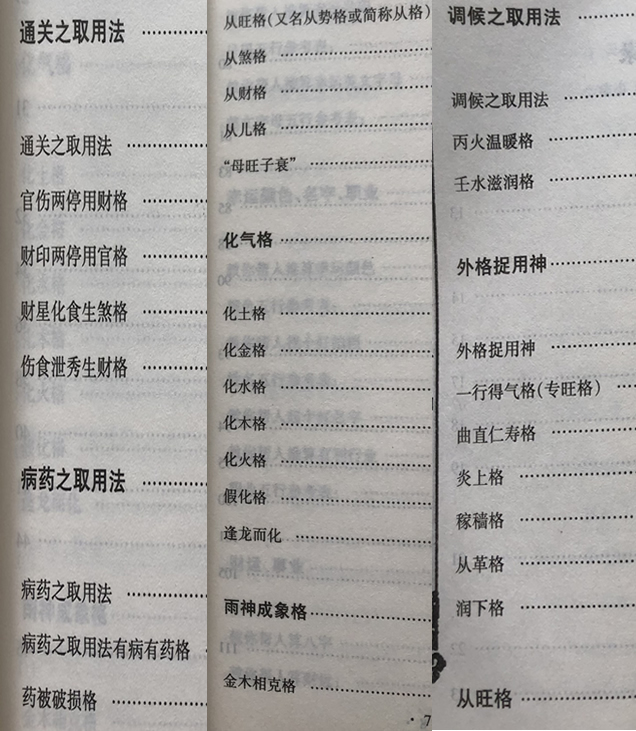 通关之取用法
通关之取用法
官伤两停用财格
财印两停用官格
财星化食生煞格
伤食泄秀生财格
病药之取用法
病药之取用法
病药之取用法有病有药格
药被破损格
从旺格(又名从势格或简称从格)
从煞格
从财格
从儿格
“母旺子衰”
化气格
化土格
化金格
化水格
化木格
化火格
假化格
逢龙而化
雨神成象格
金木相克格
· 7
调候之取用法
调候之取用法
丙火温暖格
壬水滋润格
外格捉用神
外格捉用神
一行得气格(专旺格)
曲直仁寿格
炎上格
稼穑格
从革格
润下格
从旺格